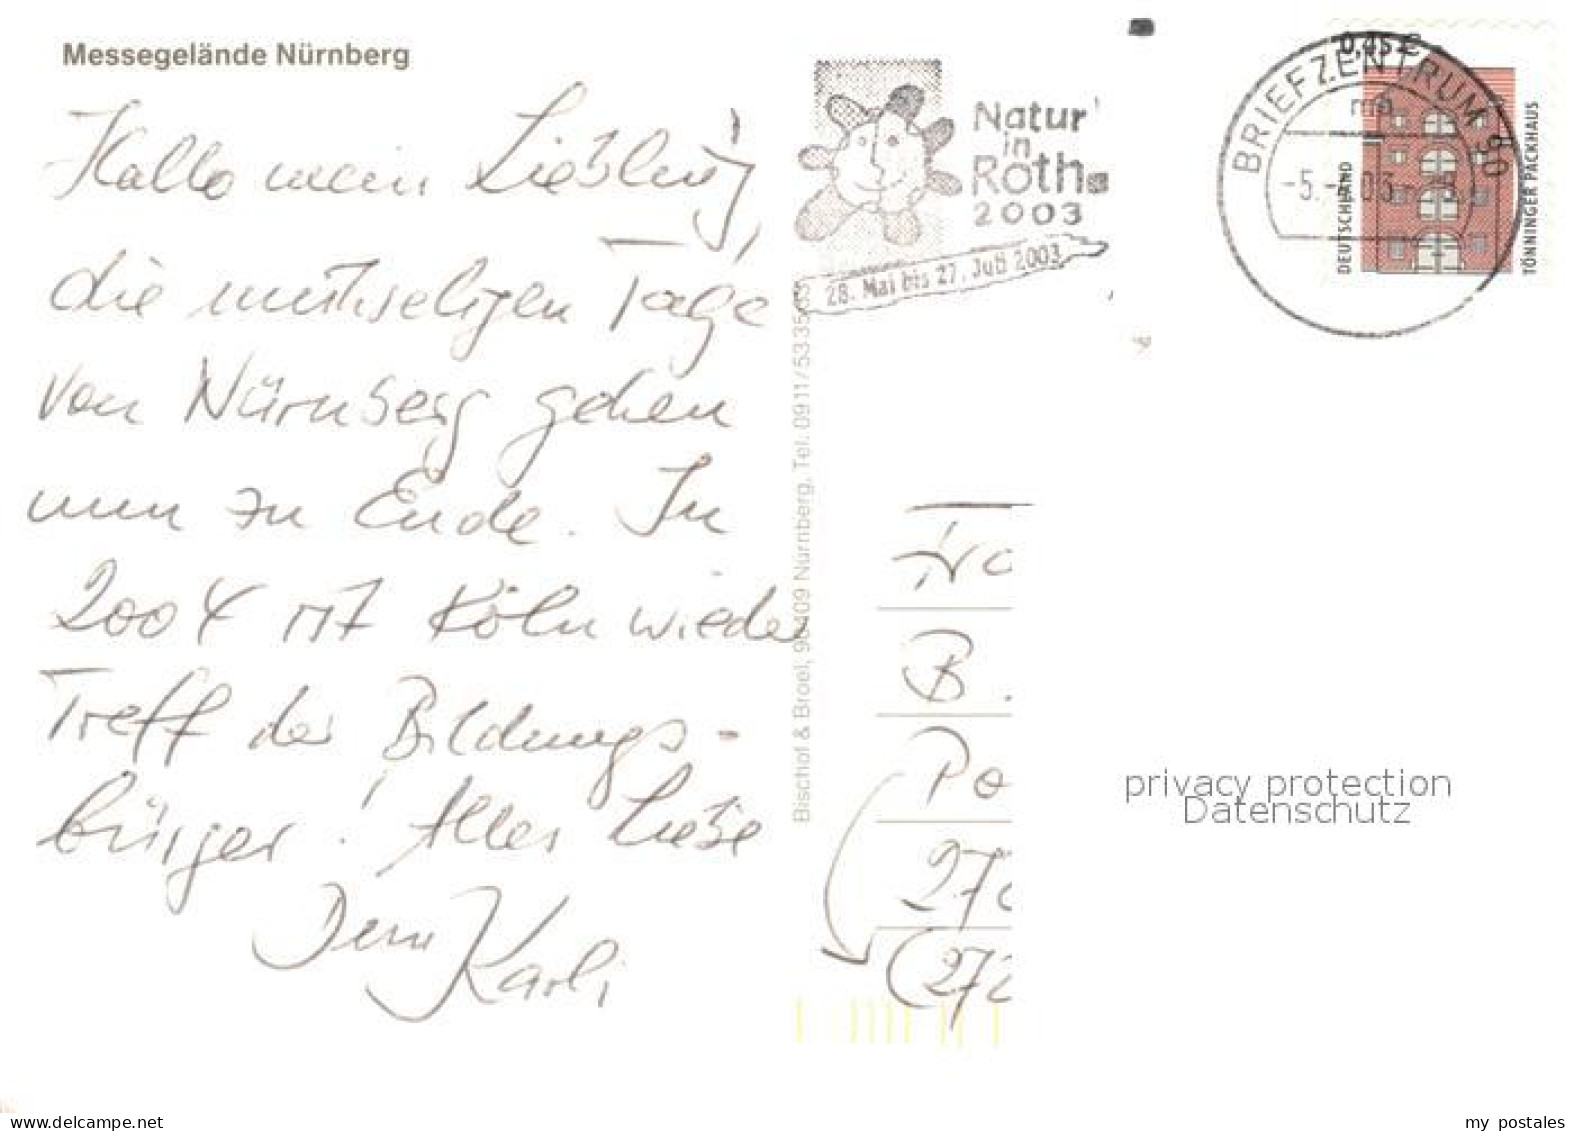 Messegelände Nürnberg
Hallo mein Liebling,
die mühseligen Tage
von Nürnberg gehen
nun zu Ende. In
2004 ist Köln wieder
Treff der Bildungs-
bürger! Alles Liebe
Dein Karli
Natur
in
Roth
2003
28. Mai bis 27. Juli 2003
BRIEFZENTRUM 90
-5.
03
0,45 €
DEUTSCHLAND
TÖNNINGER PACKHAUS
Bischof & Broel, 90409 Nürnberg, Tel. 0911/533503
B.
Po
privacy protection
Datenschutz
www.delcampe.net
my postales